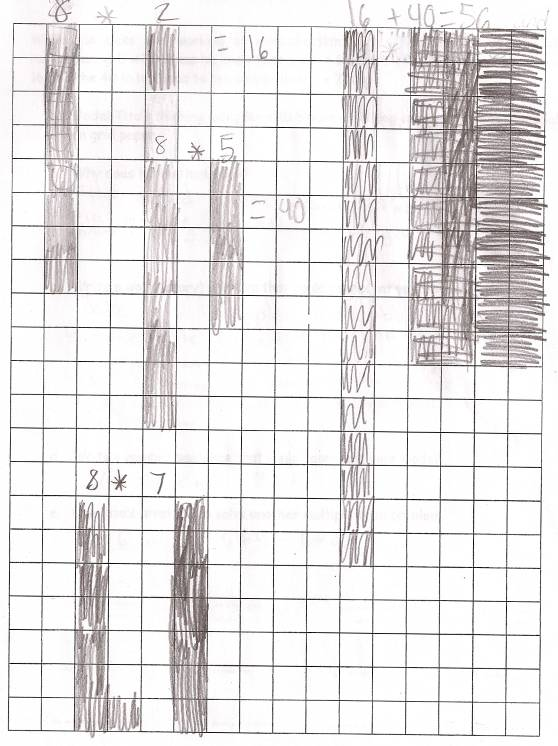 8 * 2 = 16
16 + 40 = 56
*
8 * 5 = 40
8 * 7